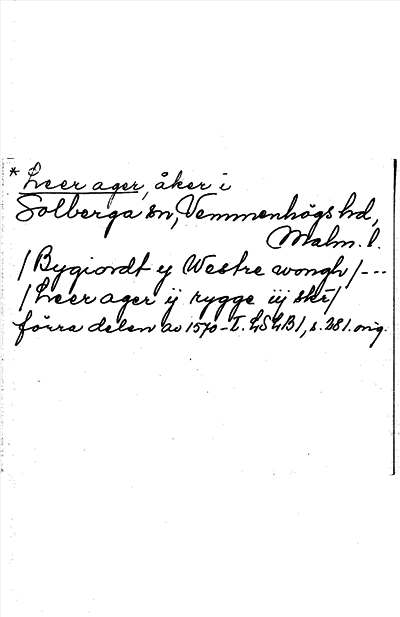 * Leer ager, åker i
Solberga sn, Vemmenhögs hd,
Malm. l.
/Bygiordt y Westre wongh/---
/Leer ager ij rygge iij sk
förra delen av 1570-T. LSLB1, s. 281. orig.